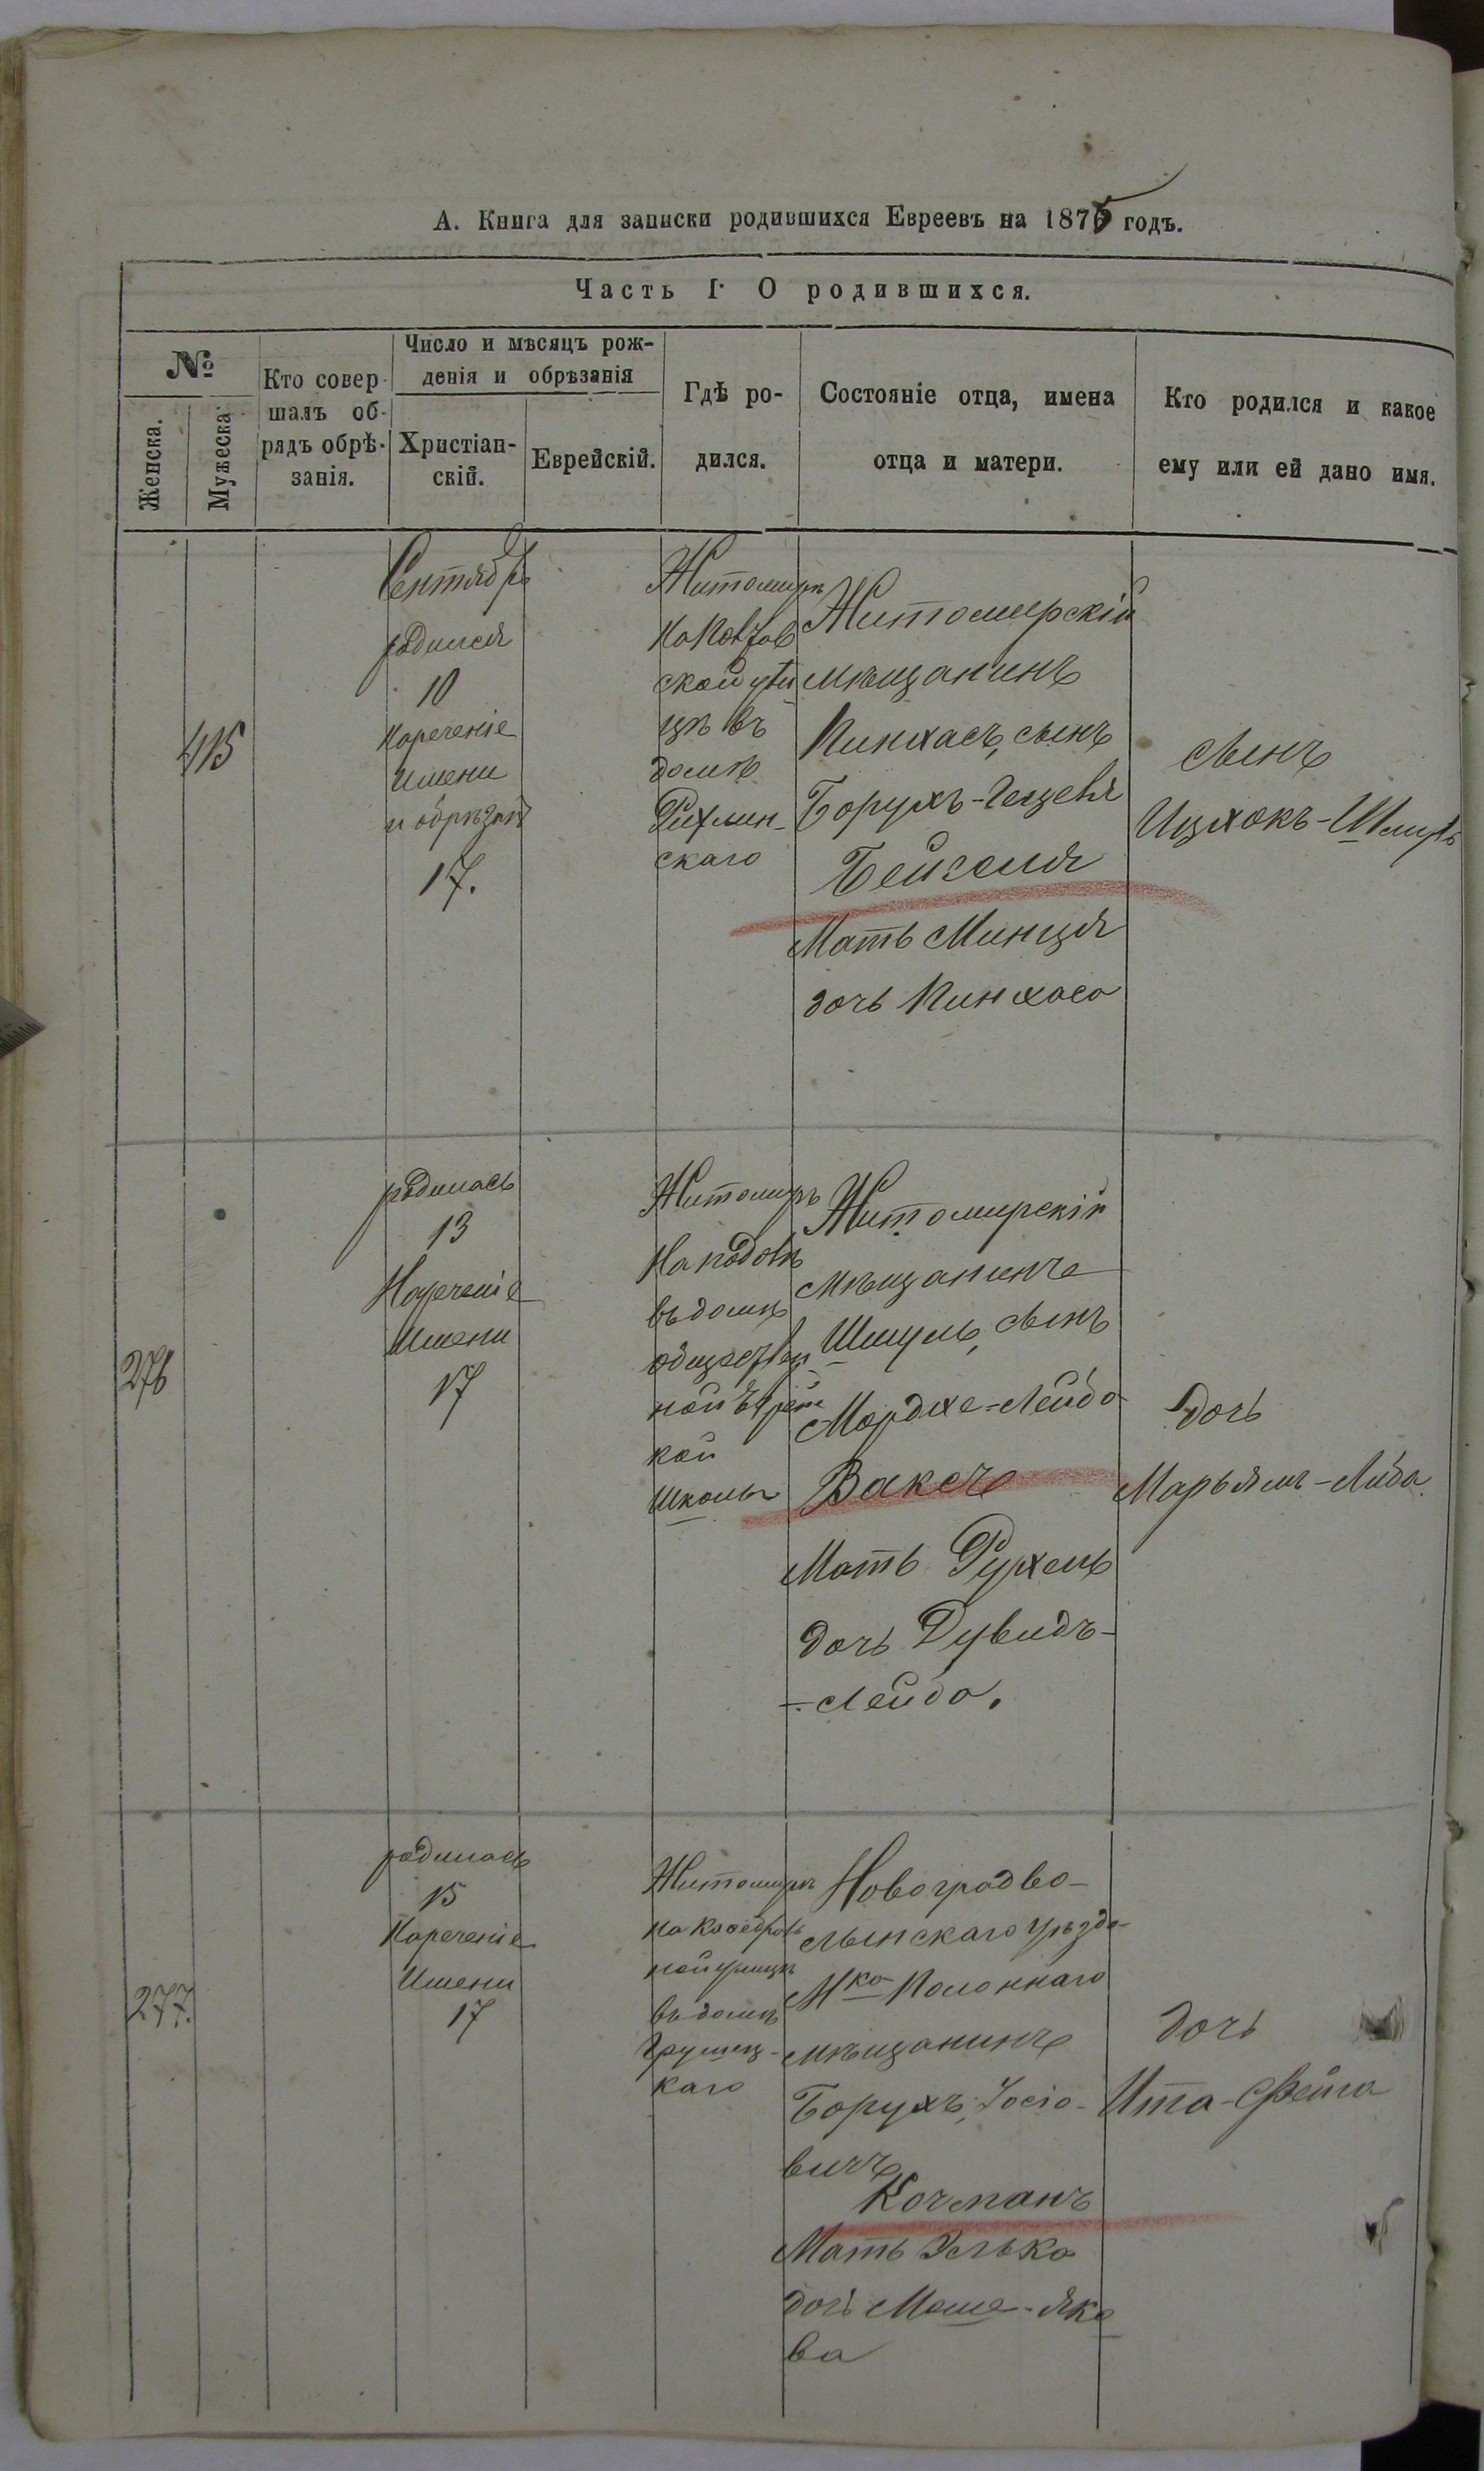 А. Книга для записки родившихся Евреевъ на 1875 годъ.
Часть I. О родившихся.
№
Женска.
Мужеска
Кто совер-
шалъ об-
рядъ обрѣ-
занія.
Число и мѣсяцъ рож-
денія и обрѣзанія
Христіан-
скій.
Еврейскій.
Гдѣ ро-
дился.
Состояніе отца, имена
отца и матери.
Кто родился и какое
ему или ей дано имя.
415
Сентябрь
родился
10
Нареченіе
Имени
и обрѣзанія
17.
Житомиръ
ской
цѣ въ
домѣ
Рихлин-
скаго
Житомирскій
мѣщанинъ
Пинхасъ, сынъ
Борухъ-Гецеля
Бейгеля
Мать Минця
дочь Пинхаса
сынъ
Ицхокъ-Шмуль
276
родилась
13
Нареченіе
Имени
17
Житомиръ
На подолѣ
въ домѣ
обществен
ной Еврейс
кой
Школы
Житомирскій
мѣщанинъ
Шмуль, сынъ
Мордхе-Лейба
Ваксъ
Мать Рухель
дочь Дувидъ-
-Лейба.
дочь
Марьямъ-Либа
277.
родилась
15
Нареченіе
Имени
17
Житомиръ
на Кафедраль
ной улицѣ
въ домѣ
Грушец-
каго
Новоградво-
лынскаго уѣзда
Мка Полоннаго
мѣщанинъ
Борухъ, Іосіо-
вичъ
Кочманъ
Мать Элька
дочь Моше-Яко
ва
дочь
Ита-Фейга